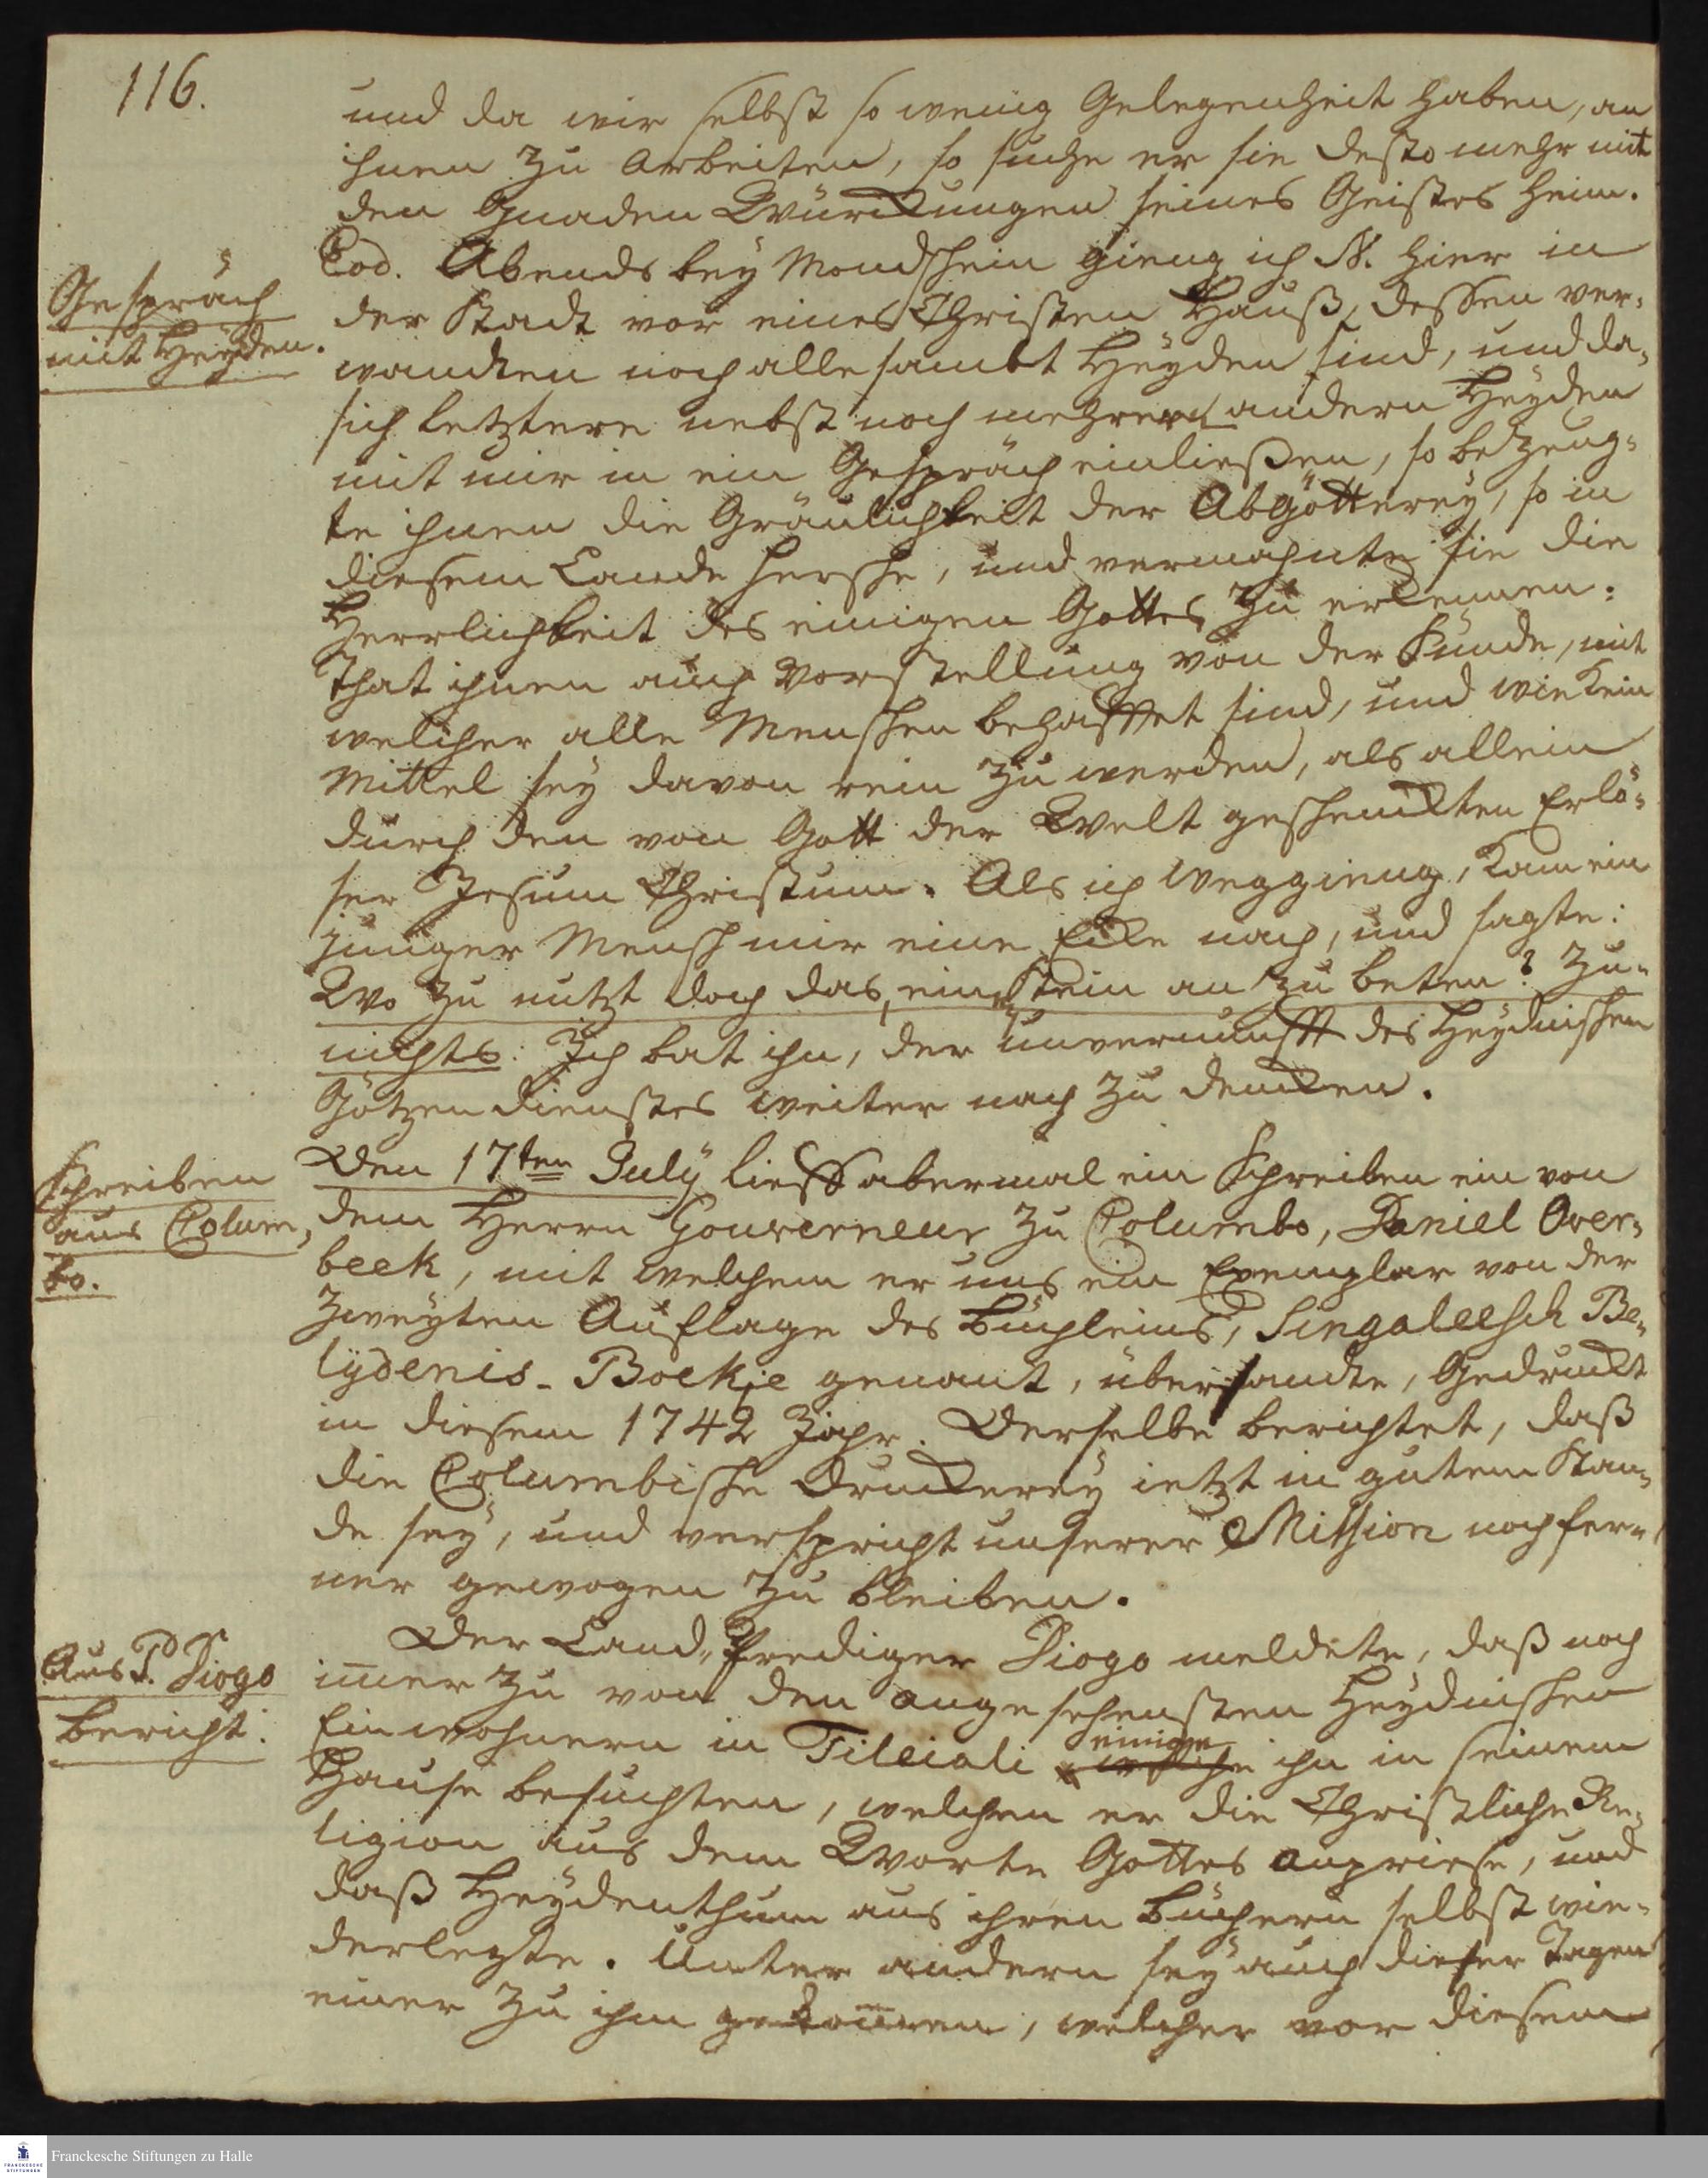 116.
und da wir selbst so wenig Gelegenheit haben, an
ihnen zu arbeiten, so suche er sie desto mehr mit
den Gnaden Würckungen seines Geistes heim.
Gespräch
mit Heyden.
Eod. Abends bey Mondschein gieng ich N. hier in
der Stadt vor eines Christen Hauß, dessen ver-
wandten noch alle sambt Heyden sind, und da
sich letztere nebst noch mehrern andern Heyden
mit mir in ein Gespräch einließen, so bezeug-
te ihnen die Gräulichkeit der Abgötterey, so in
diesem Lande hersche, und vermahnte sie die
Herrlichkeit des einigen Gottes zu erkennen:
That ihnen auch Vorstellung von der Sünde, mit
welcher alle Menschen behafftet sind, und wie kein
Mittel sey davon rein zu werden, als allein
durch den von Gott der Welt geschenckten Erlö-
ser Jesum Christum. Als ich weggieng, kam ein
junger Mensch mir eine Ecke nach, und sagte:
Wo zu nutzt doch das, ein Stein an zu beten? Zu
nichts: Ich bat ihn, der unvernunfft des Heydnischen
Götzendienstes weiter nach zu dencken.
Schreiben
aus Colum,
bo.
Den 17ten July lieff abermal ein Schreiben ein von
dem Herrn Gouverneur zu Columbo, Daniel Over-
beek, mit welchem er uns ein Exemplar von der
Zweyten Auflage des Büchleins, Singaleesch Be-
lydenis-Boekje genant, übersandte, Gedruckt
in diesem 1742 Jahr. Derselbe berichtet, daß
die Columbische Druckerey ietzt in gutem Stan-
de sey, und verspricht unserer Mission noch fer-
ner gewogen zu bleiben.
Aus P. Diogo
bericht.
Der Land-Prediger Diogo meldete, daß noch
im̅er zu von den angesehensten Heydnischen
Einwohnern in Tileiali einige ihn in seinem
Hause besuchten, welchen er die Christliche Re-
ligion aus dem Worte Gottes anpriese, und
daß Heydenthum aus ihren Büchern selbst wie-
derlegte. Unter andern sey auch dieser Tagen
einer zu ihm gekom̅en, welcher vor diesem
FRANCKESCHE STIFTUNGEN
Franckesche Stiftungen zu Halle